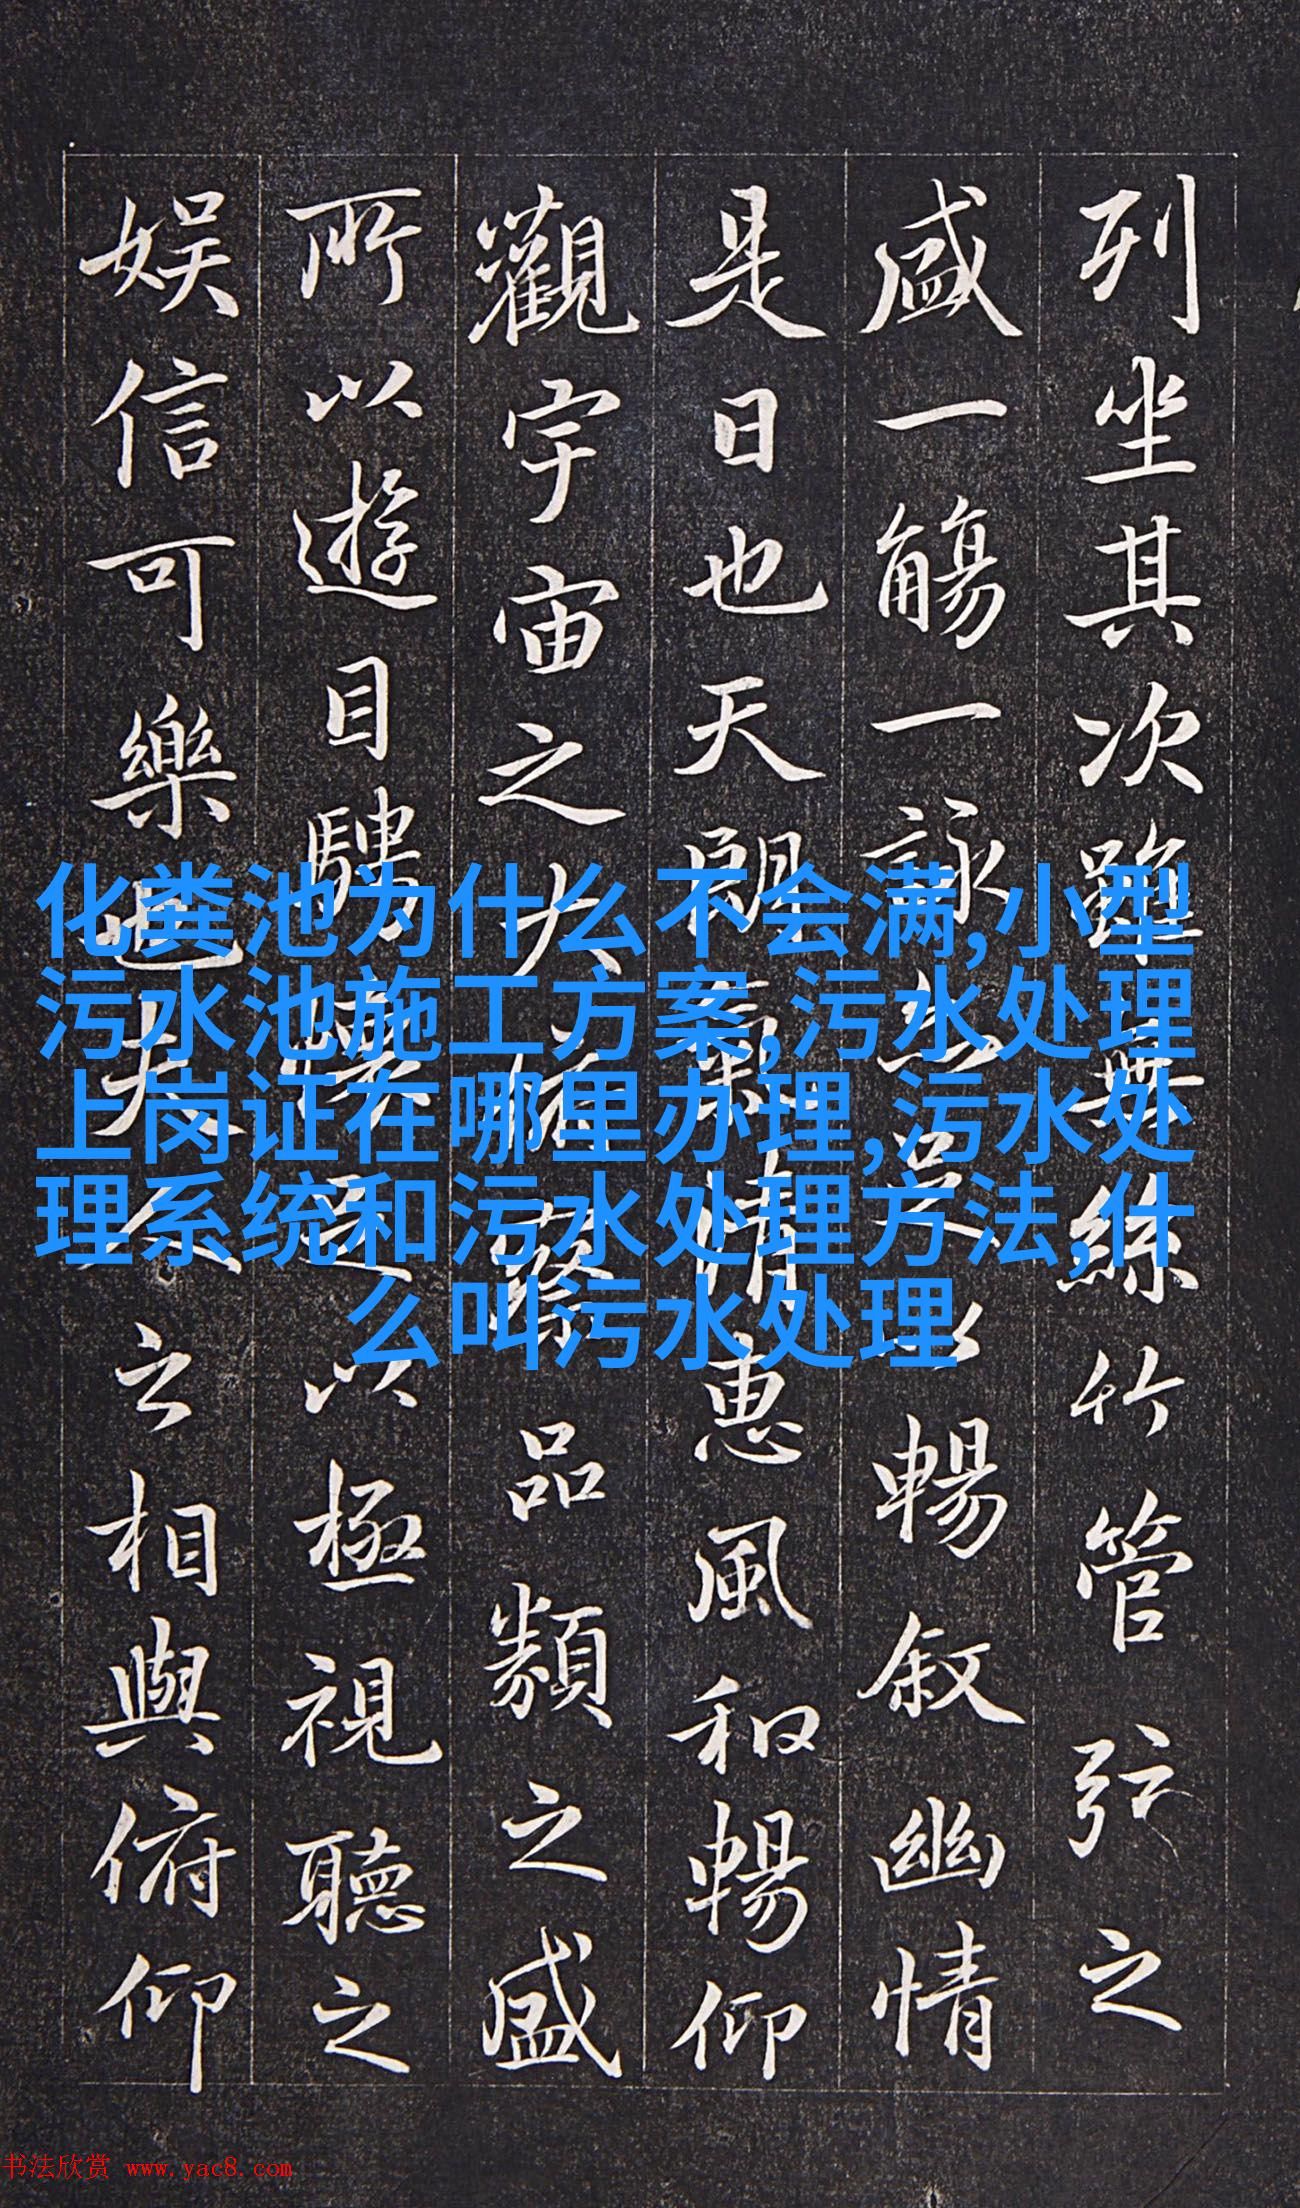 列坐其次雖無絲竹管弦之
盛一觴一詠亦足以暢敘幽情
是日也天朗氣清惠風和暢仰
觀宇宙之大俯察品類之盛
所以遊目騁懷足以極視聽之
娛信可樂也夫人之相與俯仰
化粪池为什么不会满,小型
污水池施工方案,污水处理
上岗证在哪里办理,污水处
理系统和污水处理方法,什
么叫污水处理
书法欣赏 www.yac8.com